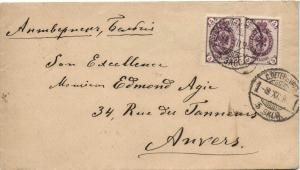 Антверпенъ, Бельгія
Son Excellence
Monsieur Edmond Agie
34, Rue des Tanneurs
Anvers.
С. ПЕТЕРБУРГЪ